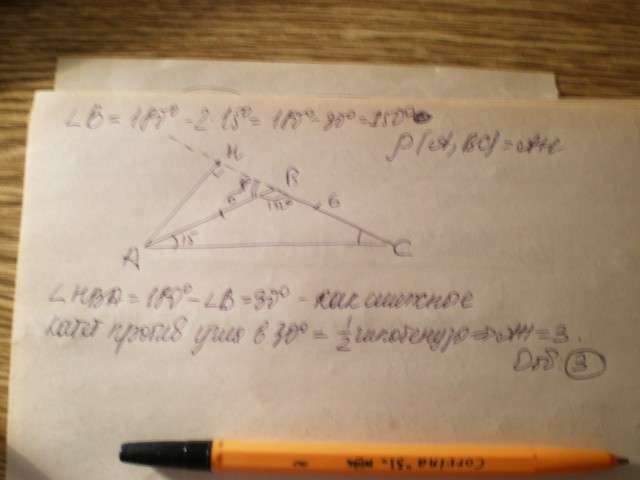 ∠B = 180° - 2·15° = 180° - 30° = 150°
ρ(A, BC) = AH.
H
B
6
6
150°
A
15°
C
∠HBA = 180° - ∠B = 30° - как смежные
Катет против угла в 30° = 1/2 гипотенузы => AH = 3.
Отв 3
Corvina "51"